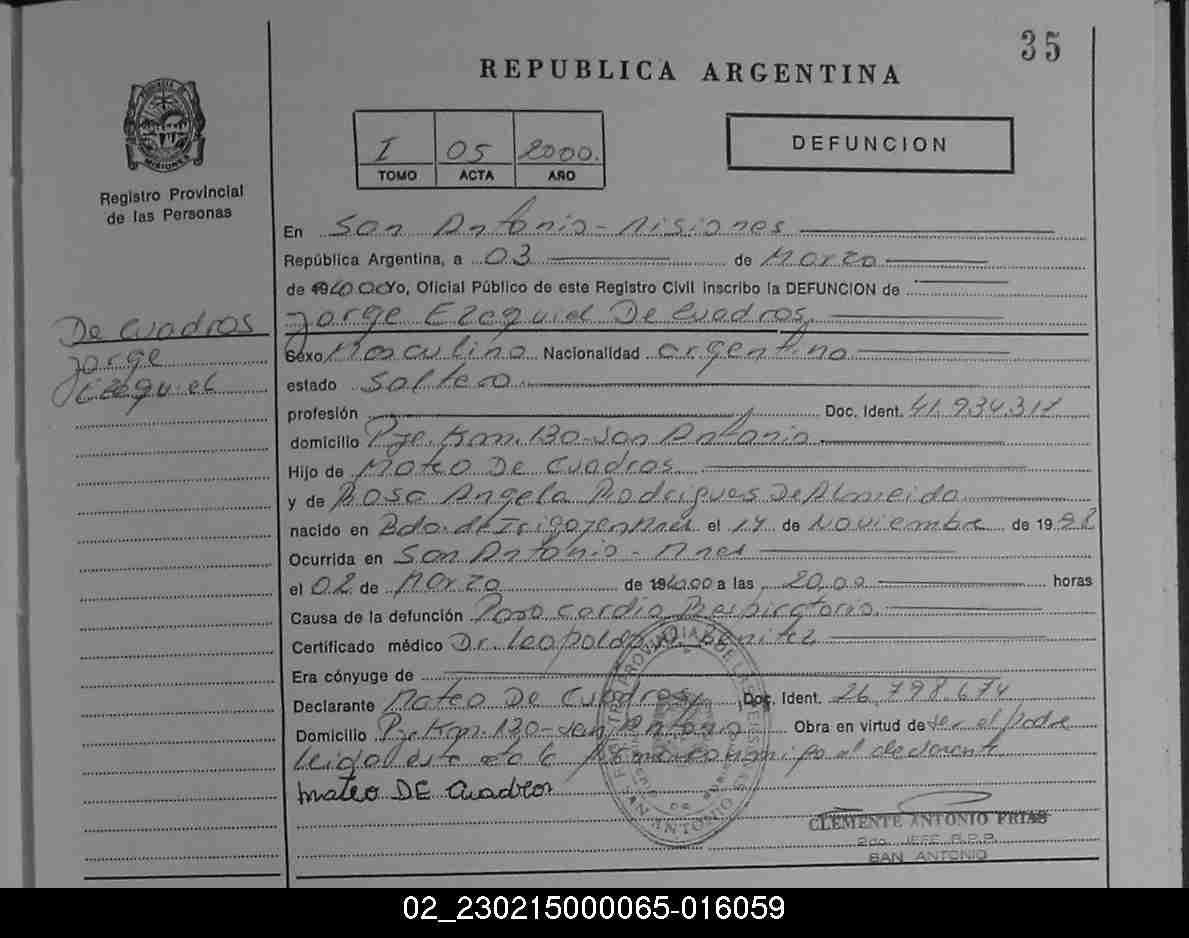 35
REPUBLICA ARGENTINA
I 05 2000.
TOMO ACTA AÑO
DEFUNCION
MISIONES
Registro Provincial
de las Personas
De Cuadros
Jorge
Ezequiel
En San Antonio - Misiones
República Argentina, a 03 de Marzo
de 2000 Yo, Oficial Público de este Registro Civil inscribo la DEFUNCION de
Jorge Ezequiel De Cuadros
Sexo Masculino Nacionalidad argentino
estado Soltero
profesión Doc. Ident. 41.934.317
domicilio Pje. Km. 130 - San Antonio
Hijo de Mateo De Cuadros
y de Rosa Angela Rodrigues De Almeida
nacido en Bdo. de Irigoyen Mnes el 14 de Noviembre de 1998
Ocurrida en San Antonio - Mnes
el 02 de Marzo de 2000 a las 20,00 horas
Causa de la defunción Paro cardio Respiratorio
Certificado médico Dr. Leopoldo Benitez
Era cónyuge de
Declarante Mateo De Cuadros Doc. Ident. 26.798.674
Domicilio Pje. Km. 130 - San Antonio Obra en virtud de ser el padre
leida esta acta el declarante
mateo DE Cuadros
CLEMENTE ANTONIO FRIAS
2do. JEFE R.P.P.
SAN ANTONIO
02_230215000065-016059